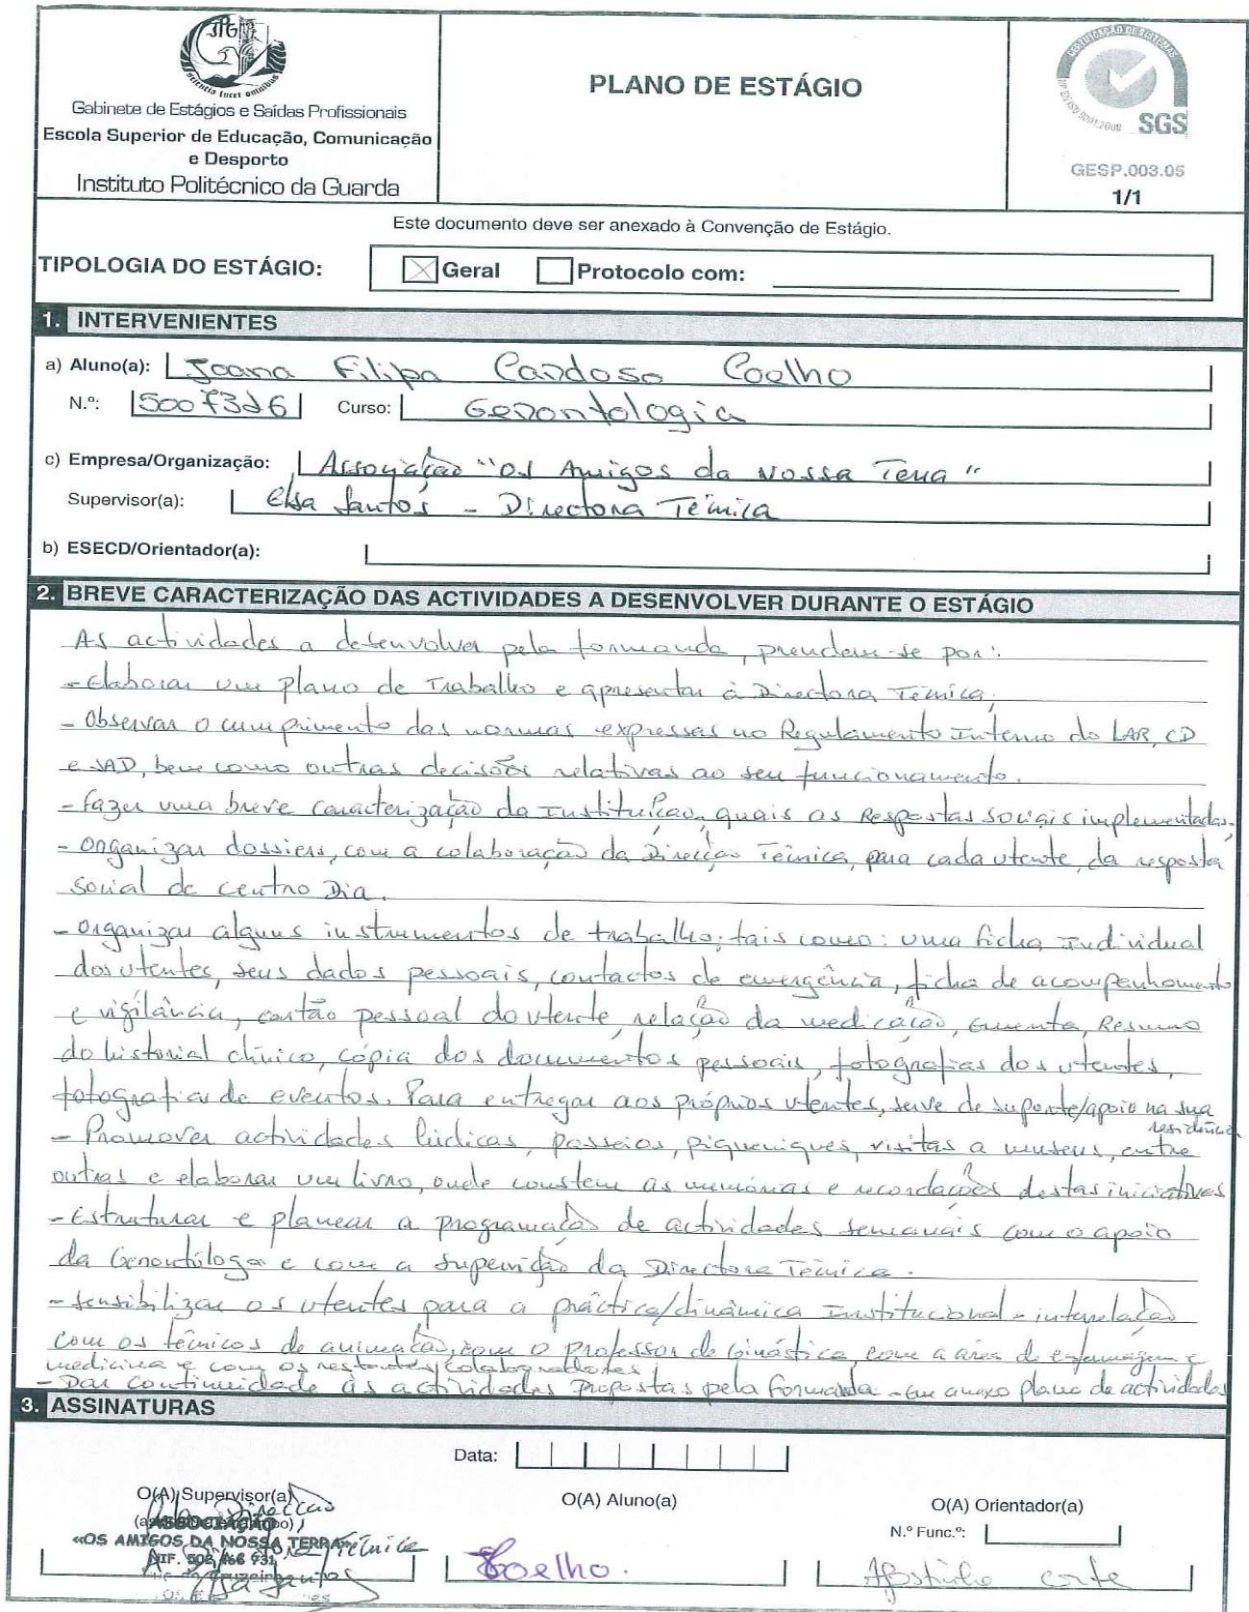 Gabinete de Estágios e Saídas Profissionais
Escola Superior de Educação, Comunicação
e Desporto
Instituto Politécnico da Guarda
PLANO DE ESTÁGIO
SGS
GESP.003.05
1/1
Este documento deve ser anexado à Convenção de Estágio.
TIPOLOGIA DO ESTÁGIO: Geral Protocolo com:
1. INTERVENIENTES
a) Aluno(a): Joana Filipa Cardoso Coelho
N.º: 5007326 Curso: Gerontologia
c) Empresa/Organização: Associação "Os Amigos da Nossa Terra"
Supervisor(a): Elsa Santos - Directora Técnica
b) ESECD/Orientador(a):
2. BREVE CARACTERIZAÇÃO DAS ACTIVIDADES A DESENVOLVER DURANTE O ESTÁGIO
As actividades a desenvolver pela formanda, prendem-se por:
- Elaborar um plano de Trabalho e apresentar à Directora Técnica;
- Observar o cumprimento das normas expressas no Regulamento Interno do LAR, CD
e SAD, bem como outras decisões relativas ao seu funcionamento.
- fazer uma breve caracterização da Instituição, quais as Respostas sociais implementadas.
- organizar dossiers, com a colaboração da Direcção Técnica, para cada utente, da resposta
social de centro Dia.
- organizar alguns instrumentos de trabalho, tais como: uma ficha Individual
dos utentes, seus dados pessoais, contactos de emergência, ficha de acompanhamento
e vigilância, cartão pessoal do utente, relação da medicação, Ementa, Resumo
do historial clínico, cópia dos documentos pessoais, fotografias dos utentes,
fotografia de eventos. Para entregar aos próprios utentes, serve de suporte/apoio na sua
residência
- Promover actividades lúdicas, passeios, piqueniques, visitas a museus, entre
outras e elaborar um livro, onde constem as memórias e recordações destas iniciativas
- Estruturar e planear a programação de actividades semanais com o apoio
da Gerontóloga e com a supervição da Directora Técnica.
- Sensibilizar os utentes para a práctica/dinâmica Institucional - interrelação
com os técnicos de animação, com o professor de Ginástica, com a área de enfermagem e
medicina e com os restantes colaboradores
- Dar continuidade às actividades propostas pela formanda - Em anexo plano de actividades
3. ASSINATURAS
Data:
O(A) Supervisor(a)
O(A) Aluno(a)
O(A) Orientador(a)
N.º Func.º:
ASSOCIAÇÃO
«OS AMIGOS DA NOSSA TERRA»
A Directora Técnica
Elsa Santos
Coelho.